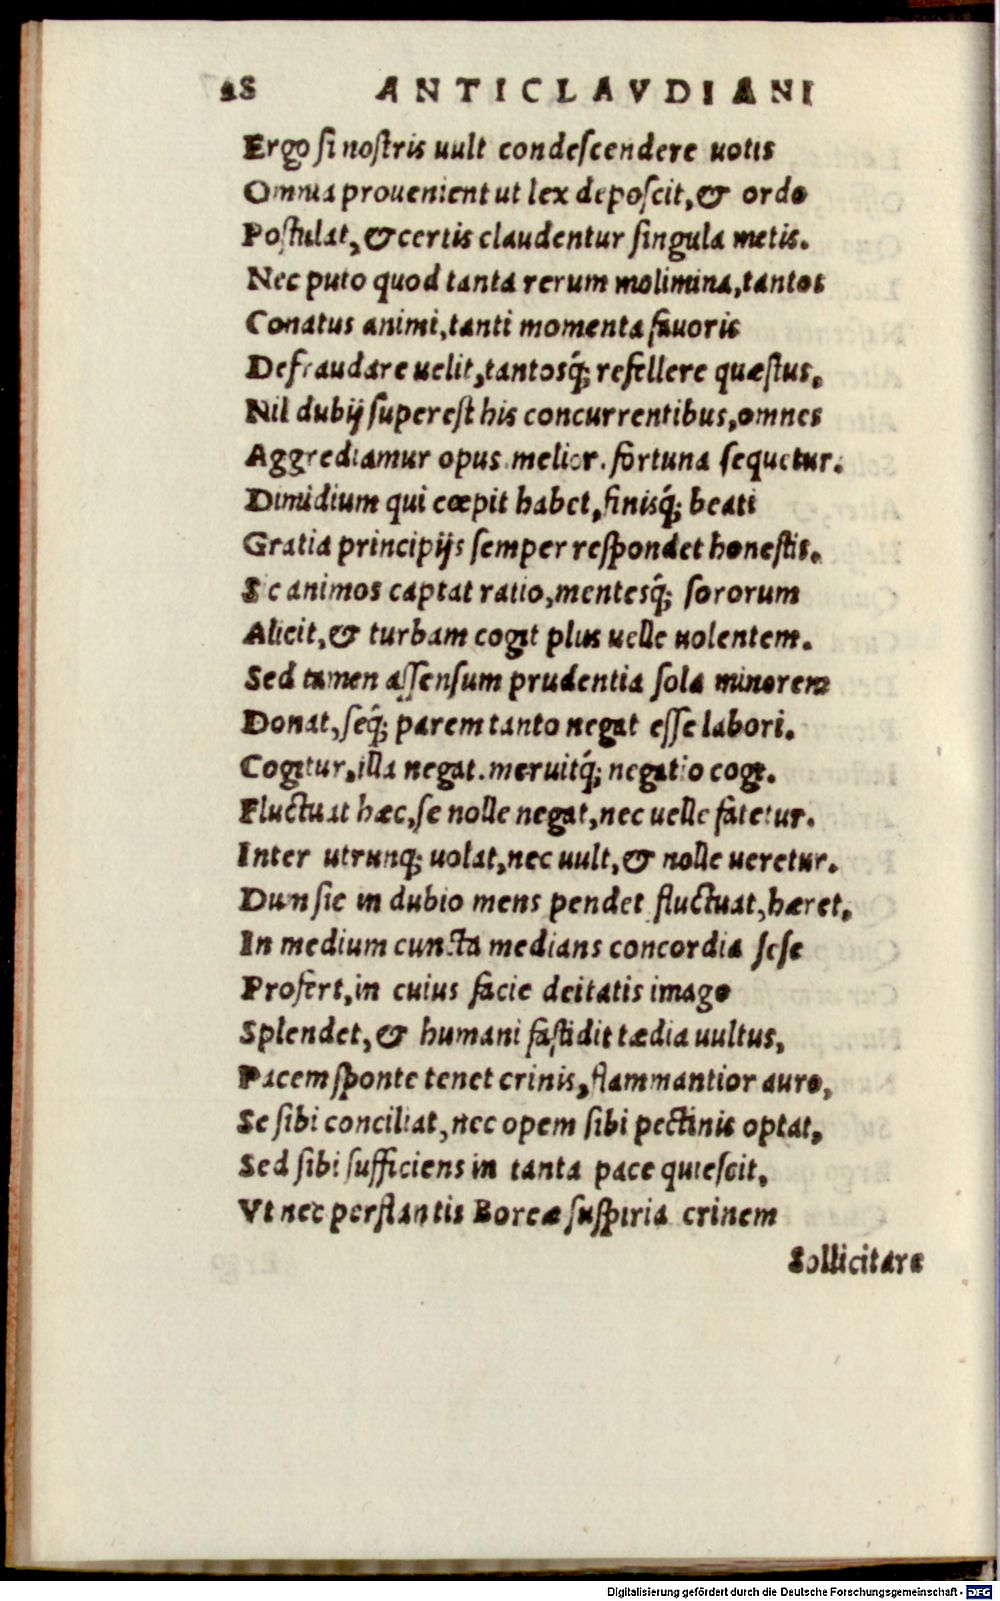 28 ANTICLAVDIANI
Ergo ſi noſtris uult condeſcendere uotis
Omnia prouenient ut lex depoſcit, & ordo
Poſtulat, & certis claudentur ſingula metis.
Nec puto quod tanta rerum molimina, tantos
Conatus animi, tanti momenta fauoris
Defraudare uelit, tantosq́; refellere quæſtus,
Nil dubij ſupereſt his concurrentibus, omnes
Aggrediamur opus. melior. fortuna ſequetur.
Dimidium qui cœpit habet, finisq́; beati
Gratia principijs ſemper reſpondet honeſtis.
Sic animos captat ratio, mentesq́; ſororum
Alicit, & turbam cogit plus uelle uolentem.
Sed tamen aſſenſum prudentia ſola minorem
Donat, ſeq́; parem tanto negat eſſe labori.
Cogitur, illa negat. meruitq́; negatio cogi.
Fluctuat hæc, ſe nolle negat, nec uelle fatetur.
Inter utrunq; uolat, nec uult, & nolle ueretur.
Dum ſic in dubio mens pendet fluctuat, hæret,
In medium cuncta medians concordia ſeſe
Profert, in cuius facie deitatis imago
Splendet, & humani faſtidit tædia uultus,
Pacem ſponte tenet crinis, flammantior auro,
Se ſibi conciliat, nec opem ſibi pectinis optat,
Sed ſibi ſufficiens in tanta pace quieſcit,
Vt nec perflantis Boreæ ſuſpiria crinem
Sollicitare
Digitalisierung gefördert durch die Deutsche Forschungsgemeinschaft - DFG